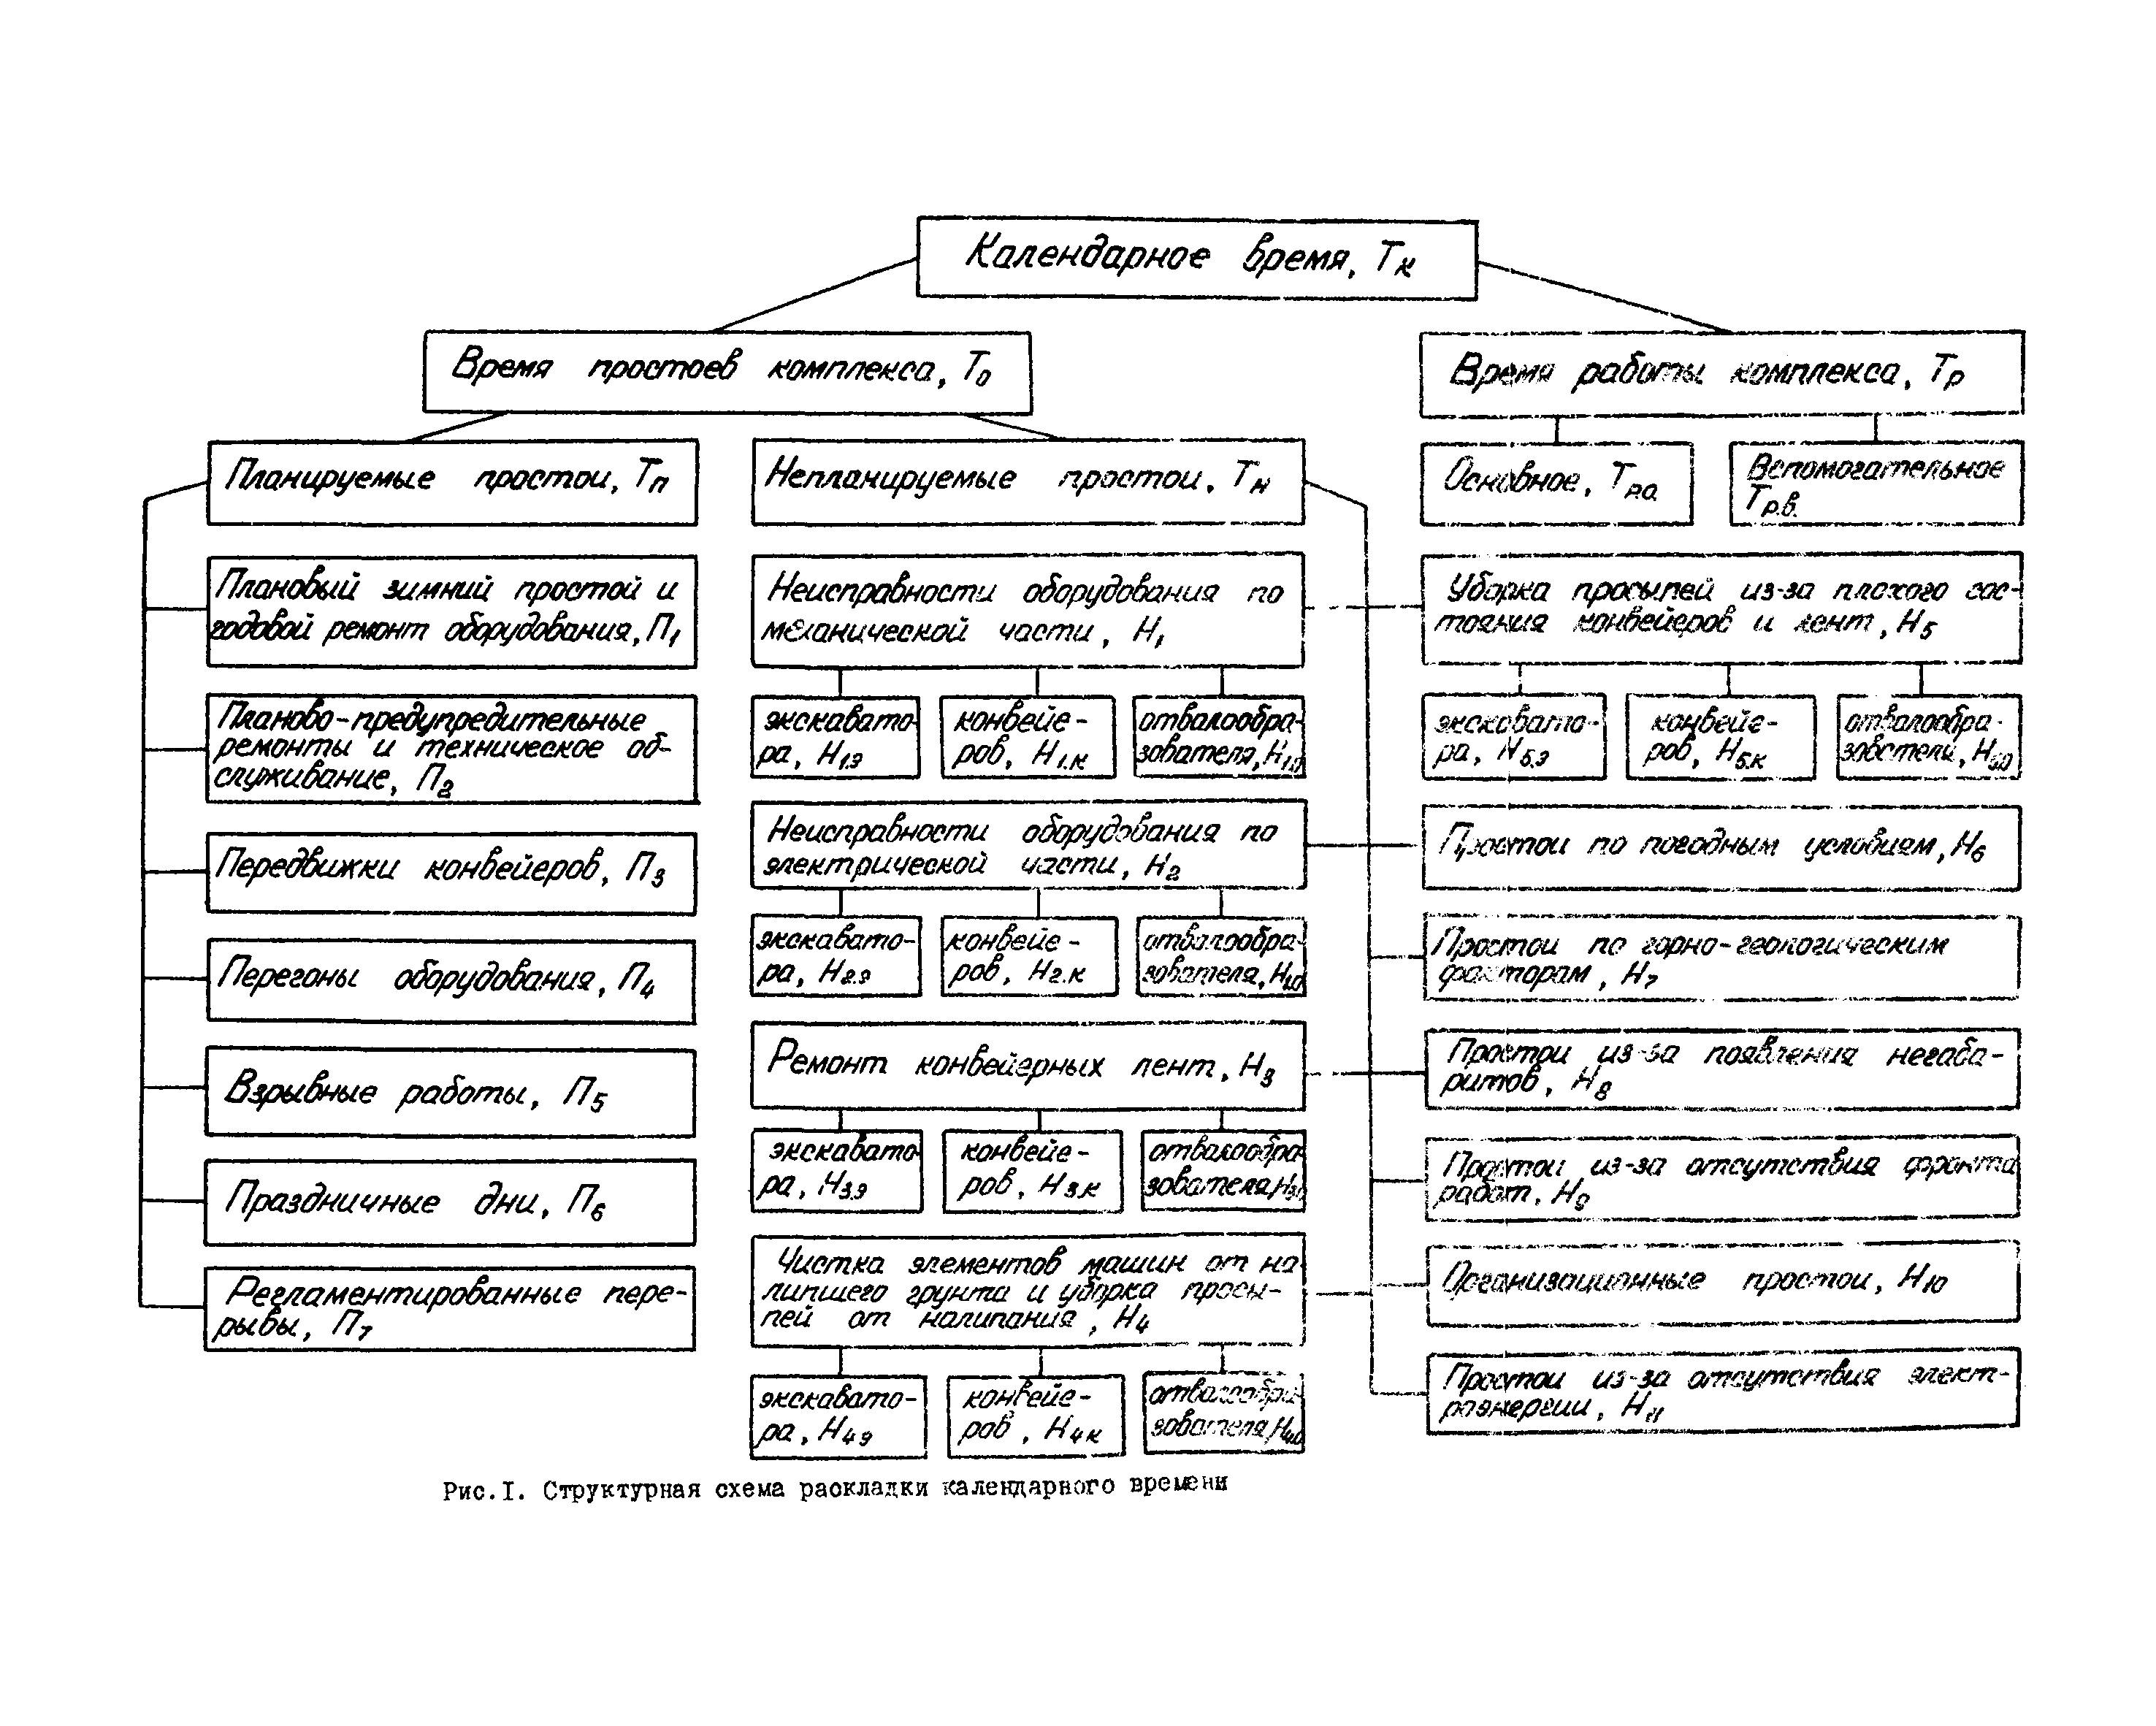 Календарное время, Тк
Время простоев комплекса, То
Время работы комплекса, Тр
Планируемые простои, Тп
Непланируемые простои, Тн
Основное, Тр.о.
Вспомогательное
Тр.в.
Плановый зимний простой и
годовой ремонт оборудования, П1
Планово-предупредительные
ремонты и техническое об-
служивание, П2
Передвижки конвейеров, П3
Перегоны оборудования, П4
Взрывные работы, П5
Праздничные дни, П6
Регламентированные пере-
рывы, П7
Неисправности оборудования по
механической части, Н1
экскавато-
ра, Н1.э
конвейе-
ров, Н1.к
отвалообра-
зователя, Н1.о
Неисправности оборудования по
электрической части, Н2
экскавато-
ра, Н2.э
конвейе-
ров, Н2.к
отвалообра-
зователя,
Ремонт конвейерных лент, Н3
экскавато-
ра, Н3.э
конвейе-
ров, Н3.к
отвалообра-
зователя,
Чистка элементов машин от на-
липшего грунта и уборка просы-
пей от налипания, Н4
экскавато-
ра, Н4.э
конвейе-
ров, Н4.к
отвалообра-
зователя, Н4.о
Уборка просыпей из-за плохого сос-
тояния конвейеров и лент, Н5
экскавато-
ра, Н5.э
конвейе-
ров, Н5.к
отвалообра-
зователя, Н5.о
Простои по погодным условиям, Н6
Простои по горно-геологическим
факторам, Н7
Простои из-за появления негаба-
ритов, Н8
Простои из-за отсутствия фронта
работ, Н9
Организационные простои, Н10
Простои из-за отсутствия элект-
роэнергии, Н11
Рис.I. Структурная схема раскладки календарного времени